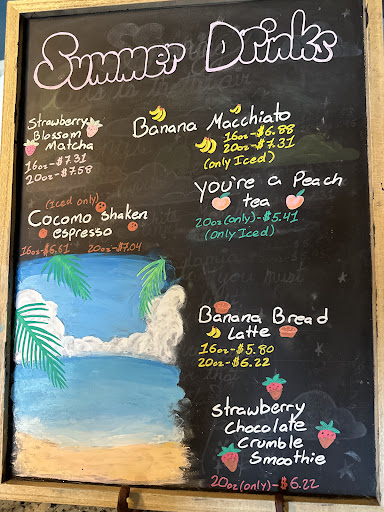 Summer Drinks
Strawberry
Blossom
Matcha
16oz-$7.31
20oz-$7.58
(Iced only)
Cocomo Shaken
espresso
16oz-$6.61 20oz-$7.04
Banana Macchiato
16oz-$6.88
20oz-$7.31
(only Iced)
You're a Peach
tea
20oz(only)-$5.41
(only Iced)
Banana Bread
Latte
16oz-$5.80
20oz-$6.22
Strawberry
Chocolate
Crumble
Smoothie
20oz(only)-$6.22